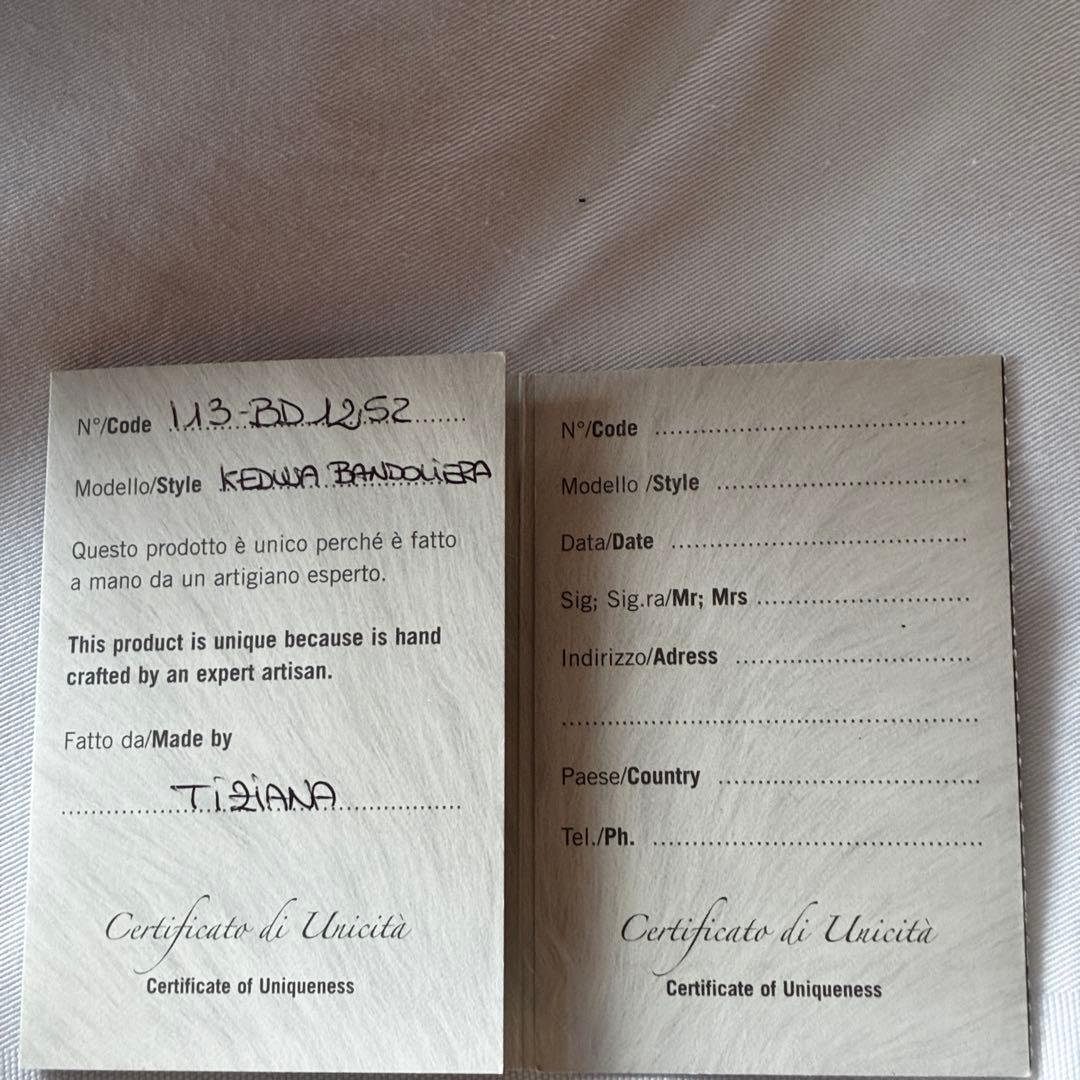 N°/Code 113-BD 1252
Modello/Style KEDWA BANDOLIERA
Questo prodotto è unico perché è fatto
a mano da un artigiano esperto.
This product is unique because is hand
crafted by an expert artisan.
Fatto da/Made by
TIZIANA
Certificato di Unicità
Certificate of Uniqueness
N°/Code
Modello /Style
Data/Date
Sig; Sig.ra/Mr; Mrs
Indirizzo/Adress
Paese/Country
Tel./Ph.
Certificato di Unicità
Certificate of Uniqueness